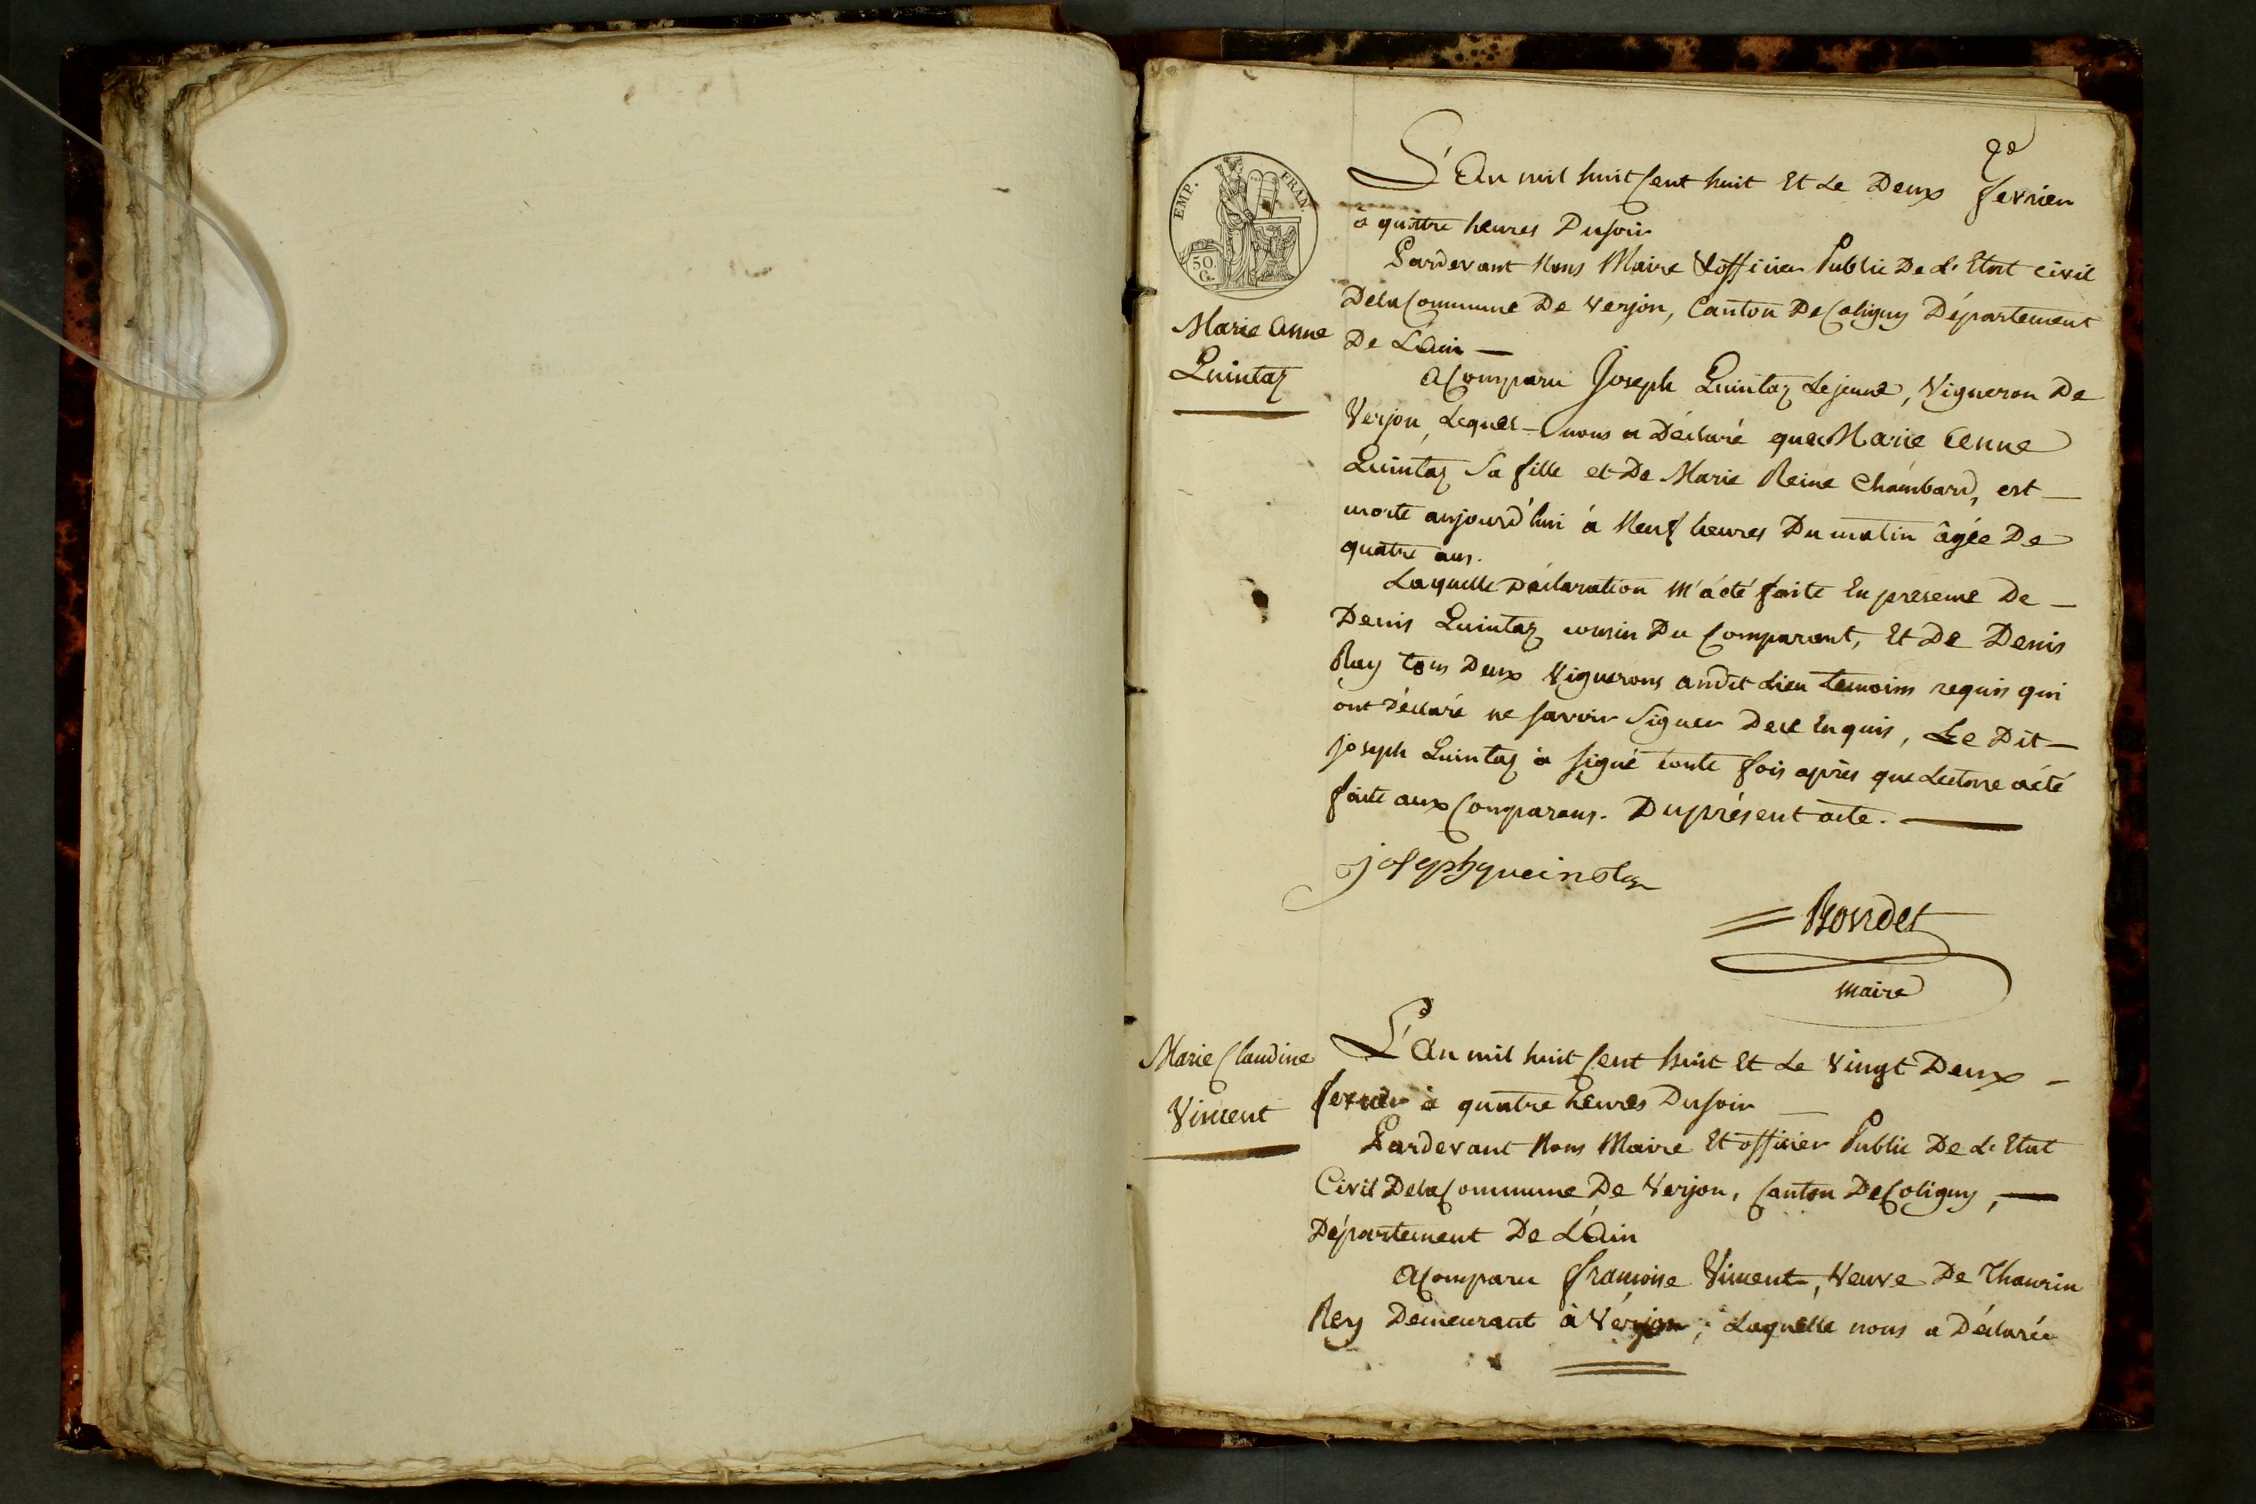 2e
EMP. FRAN.
50.
C.
L'An mil huit Cent huit Et Le Deux fevrier
à quattre heures Dusoir
Pardevant Nous Maire & officier Public De L'Etat civil
DelaCommune De Verjon, Canton DeColigny Département
De L'Ain —
Marie Anne
Quintaz
AComparu Joseph Quintaz Lejeune, Vigneron De
Verjon, Lequel — nous a Déclaré que Marie Anne
Quintaz Sa fille et De Marie Reine Chambard, est —
morte aujourd'hui à Neuf heures Du matin âgée De
quatre ans.
Laquelle Déclaration M'àété faite En présence De —
Denis Quintaz cousin Du Comparant, Et De Denis
Ray tous Deux Vignerons audit Lieu temoins requis qui
ont Déclaré ne savoir Signer Dece Enquis, Le Dit —
joseph Quintaz à signé toute fois après que Lecture àété
faite aux Comparans. Duprésent acte. —
josephqueinstaz
Bondet
maire
Marie Claudine
Vincent
L'An mil huit Cent huit Et Le Vingt Deux —
fevrier à quatre heures Dusoir —
Pardevant Nous Maire Et officier Public De L'Etat
Civil DelaCommune De Verjon, Canton DeColigny, —
Département De L'Ain
AComparu françoise Vincent, Veuve De Thaurin
Rey Demeurant à Verjon; Laquelle nous a Déclarée